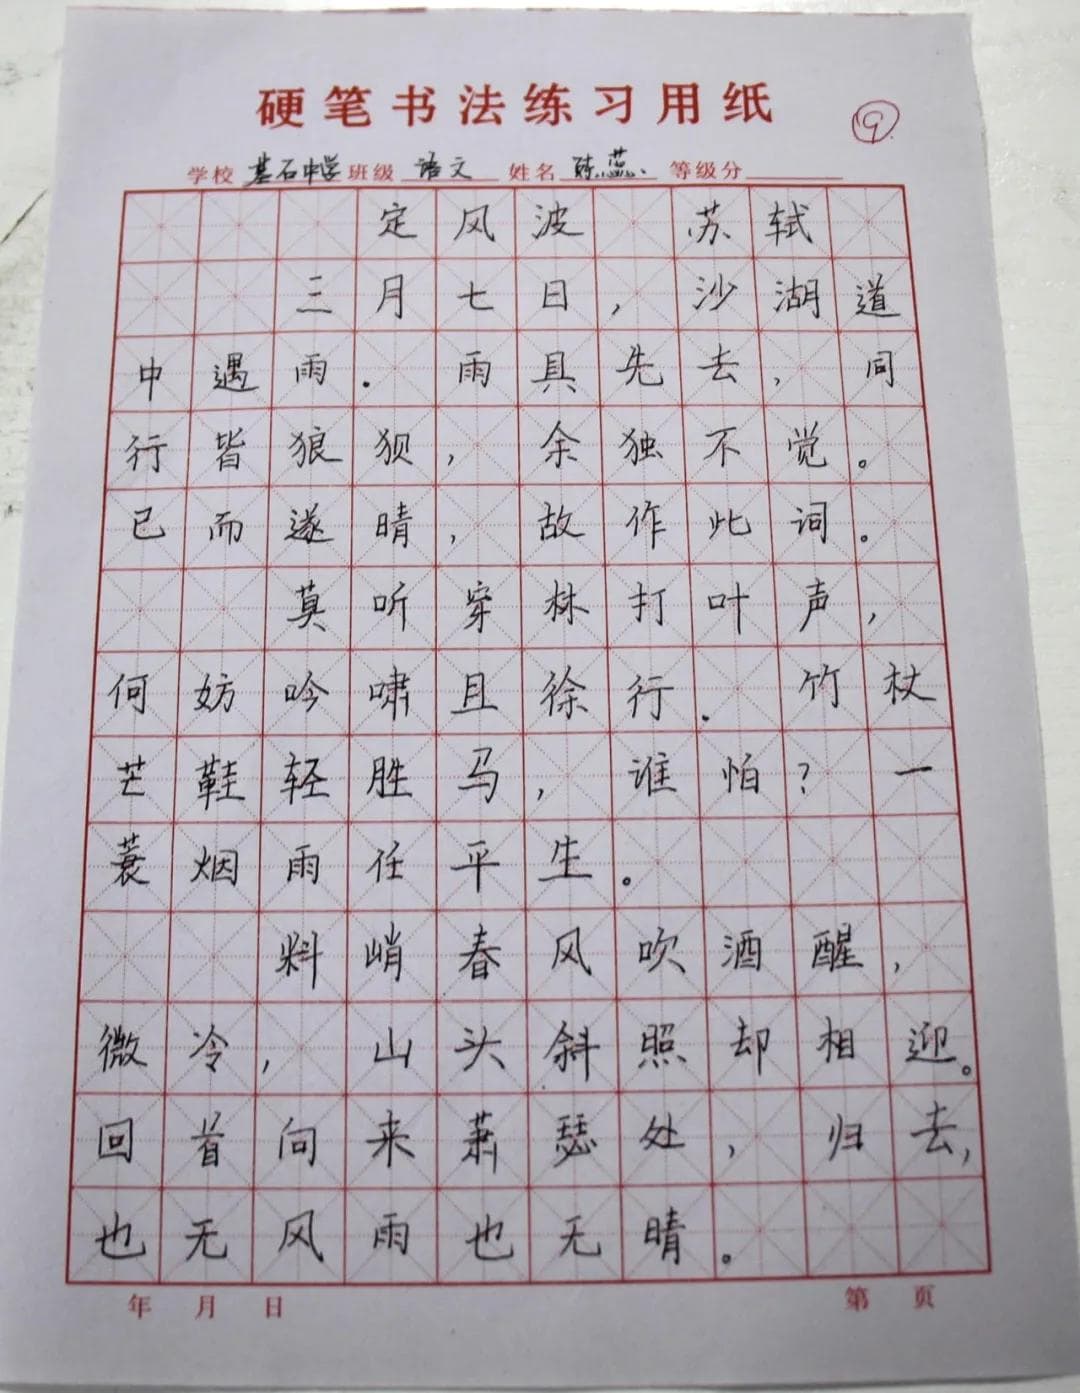 硬笔书法练习用纸
9
学校 基石中学 班级 语文 姓名 陈蕊 等级分
定风波 苏轼
三月七日，沙湖道
中遇雨．雨具先去，同
行皆狼狈，余独不觉。
已而遂晴，故作此词。
莫听穿林打叶声，
何妨吟啸且徐行．竹杖
芒鞋轻胜马，谁怕？一
蓑烟雨任平生。
料峭春风吹酒醒，
微冷，山头斜照却相迎。
回首向来萧瑟处，归去，
也无风雨也无晴。
年 月 日 第 页